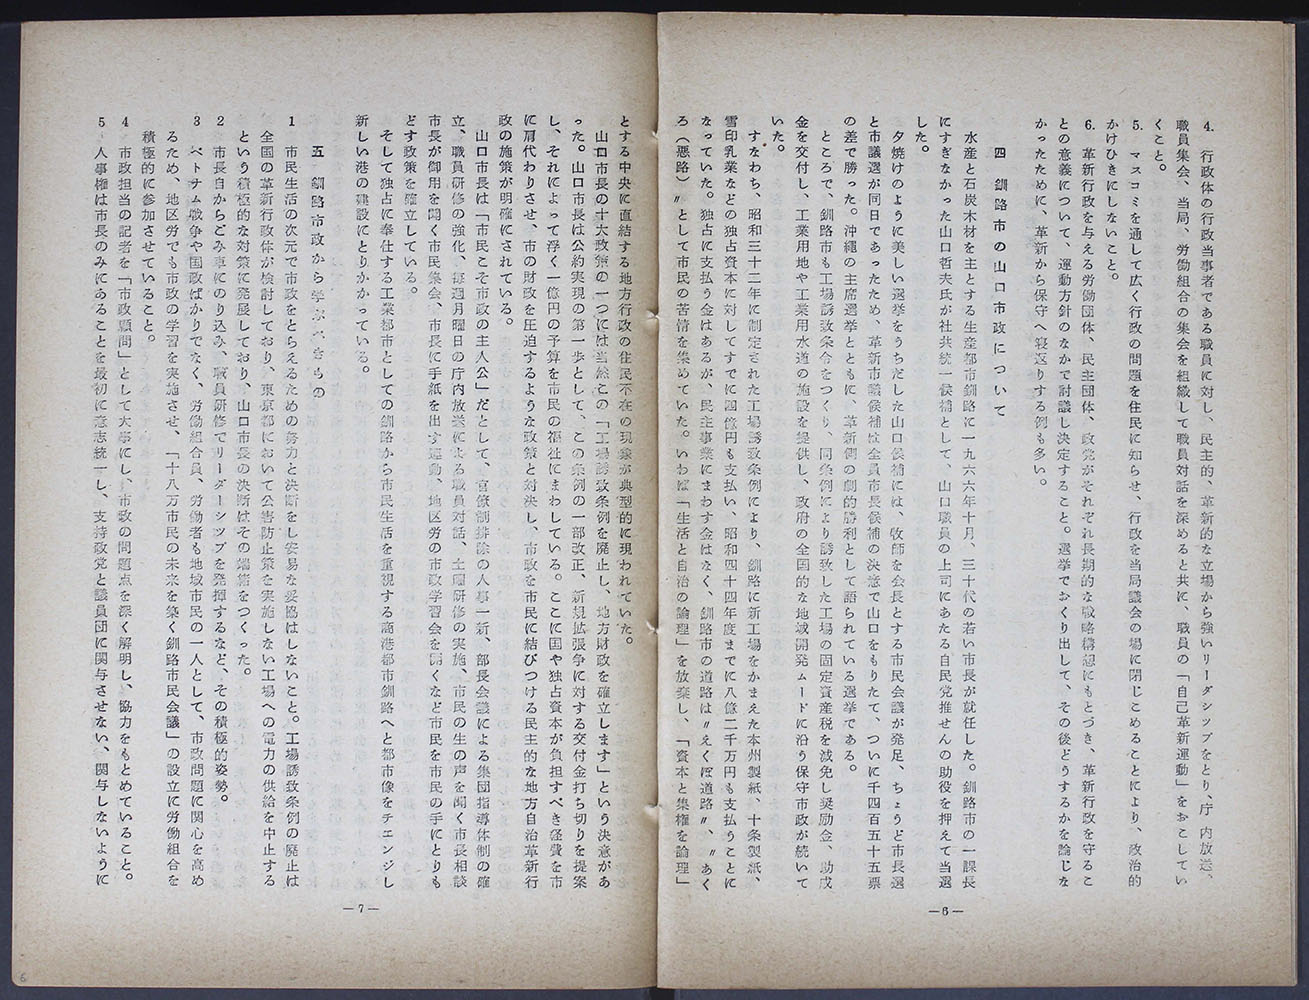 4. 行政体の行政当事者である職員に対し、民主的、革新的な立場から強いリーダシップをとり、庁内放送、
職員集会、当局、労働組合の集会を組織して職員対話を深めると共に、職員の「自己革新運動」をおこしてい
くこと。
5. マスコミを通して広く行政の問題を住民に知らせ、行政を当局議会の場に閉じこめることにより、政治的
かけひきにしないこと。
6. 革新行政を与える労働団体、民主団体、政党がそれぞれ長期的な戦略構想にもとづき、革新行政を守るこ
との意義について、運動方針のなかで討議し決定すること。選挙でおくり出して、その後どうするかを論じな
かったために、革新から保守へ寝返りする例も多い。
四 釧路市の山口市政について
水産と石炭木材を主とする生産都市釧路に一九六六年十月、三十代の若い市長が就任した。釧路市の一課長
にすぎなかった山口哲夫氏が社共統一候補として、山口職員の上司にあたる自民党推せんの助役を押えて当選
した。
夕焼けのように美しい選挙をうちだした山口候補には、牧師を会長とする市民会議が発足、ちょうど市長選
と市議選が同日であったため、革新市議候補は全員市長候補の決意で山口をもりたて、ついに千四百五十五票
の差で勝った。沖縄の主席選挙とともに、革新側の劇的勝利として語られている選挙である。
ところで、釧路市も工場誘致条令をつくり、同条例により誘致した工場の固定資産税を減免し奨励金、助成
金を交付し、工業用地や工業用水道の施設を提供し、政府の全国的な地域開発ムードに沿う保守市政が続いて
いた。
すなわち、昭和三十二年に制定された工場誘致条例により、釧路に新工場をかまえた本州製紙、十条製紙、
雪印乳業などの独占資本に対してすでに四億円も支払い、昭和四十四年度までに八億二千万円も支払うことに
なっていた。独占に支払う金はあるが、民主事業にまわす金はなく、釧路市の道路は〃えくぼ道路〃、〃あく
ろ(悪路)〃として市民の苦情を集めていた。いわば「生活と自治の論理」を放棄し、「資本と集権を論理」
—6—
とする中央に直結する地方行政の住民不在の現象が典型的に現われていた。
山口市長の十大政策の一つには当然この「工場誘致条例を廃止し、地方財政を確立します」という決意があ
った。山口市長は公約実現の第一歩として、この条例の一部改正、新規拡張争に対する交付金打ち切りを提案
し、それによって浮く一億円の予算を市民の福祉にまわしている。ここに国や独占資本が負担すべき経費を市
に肩代わりさせ、市の財政を圧迫するような政策と対決し、市政を市民に結びつける民主的な地方自治革新行
政の施策が明確にされている。
山口市長は「市民こそ市政の主人公」だとして、官僚制排除の人事一新、部長会議による集団指導体制の確
立、職員研修の強化、毎週月曜日の庁内放送による職員対話、土曜研修の実施、市民の生の声を聞く市長相談
市長が御用を聞く市民集会、市長に手紙を出す運動、地区労の市政学習会を開くなど市民を市民の手にとりも
どす政策を確立している。
そして独占に奉仕する工業都市としての釧路から市民生活を重視する商港都市釧路へと都市像をチェンジし
新しい港の建設にとりかかっている。
五 釧路市政から学ぶべきもの
1 市民生活の次元で市政をとらえるための努力と決断をし安易な妥協はしないこと。工場誘致条例の廃止は
全国の革新行政体が検討しており、東京都において公害防止策を実施しない工場への電力の供給を中止する
という積極的な対策に発展しており、山口市長の決断はその端緒をつくった。
2 市長自からごみ車にのり込み、職員研修でリーダーシップを発揮するなど、その積極的姿勢。
3 ベトナム戦争や国政ばかりでなく、労働組合員、労働者も地域市民の一人として、市政問題に関心を高め
るため、地区労でも市政の学習を実施させ、「十八万市民の未来を築く釧路市民会議」の設立に労働組合を
積極的に参加させていること。
4 市政担当の記者を「市政顧問」として大事にし、市政の問題点を深く解明し、協力をもとめていること。
5 人事権は市長のみにあることを最初に意志統一し、支持政党と議員団に関与させない、関与しないように
—7—
6